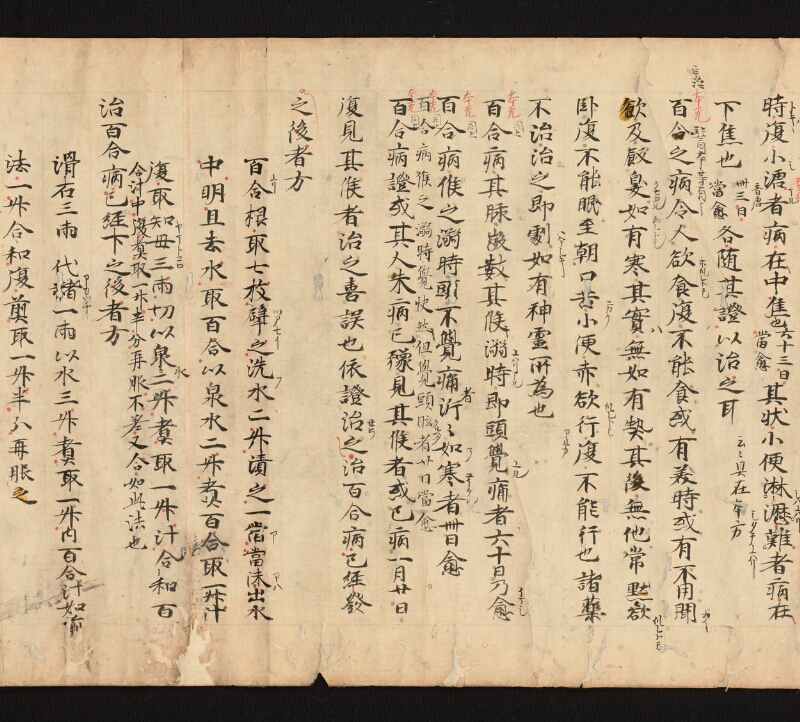 時復小濇者病在中焦也六十三日當愈其狀小便淋瀝難者病在
下焦也卅三日當愈各随其證以治之耳
百合之病令人欲食復不能食或有美時或有不用聞
飲及飯臭如有寒其實無寒如有熱其後無他常默欲
卧復不能眠至朝口苦小便赤欲行復不能行也諸藥
不治治之即劇如有神靈所為也
百合病其脉微數其候溺時即頭覺痛者六十日乃愈
百合病候之溺時頭不覺痛淅淅如寒者卌日愈
百合病候之溺時覺快然但覺頭眩者廿日當愈
百合病證或其人未病已豫見其候者或已病一月廿日
復見其候者治之喜誤也依證治之治百合病已經發
之後者方
百合根取七枚擘之洗水二升漬之一當當沫出水
中明旦去水取百合以泉水二升煮百合取一升汁
復取知母三兩切以泉水二升煮取一升汁合和百
合汁中復煮取一升半分再服不差又合如此法也
治百合病已經下之後者方
滑石三兩代諸一兩以水三升煮取一升内百合汁如前
法一升合和復煎取一升半分再服之